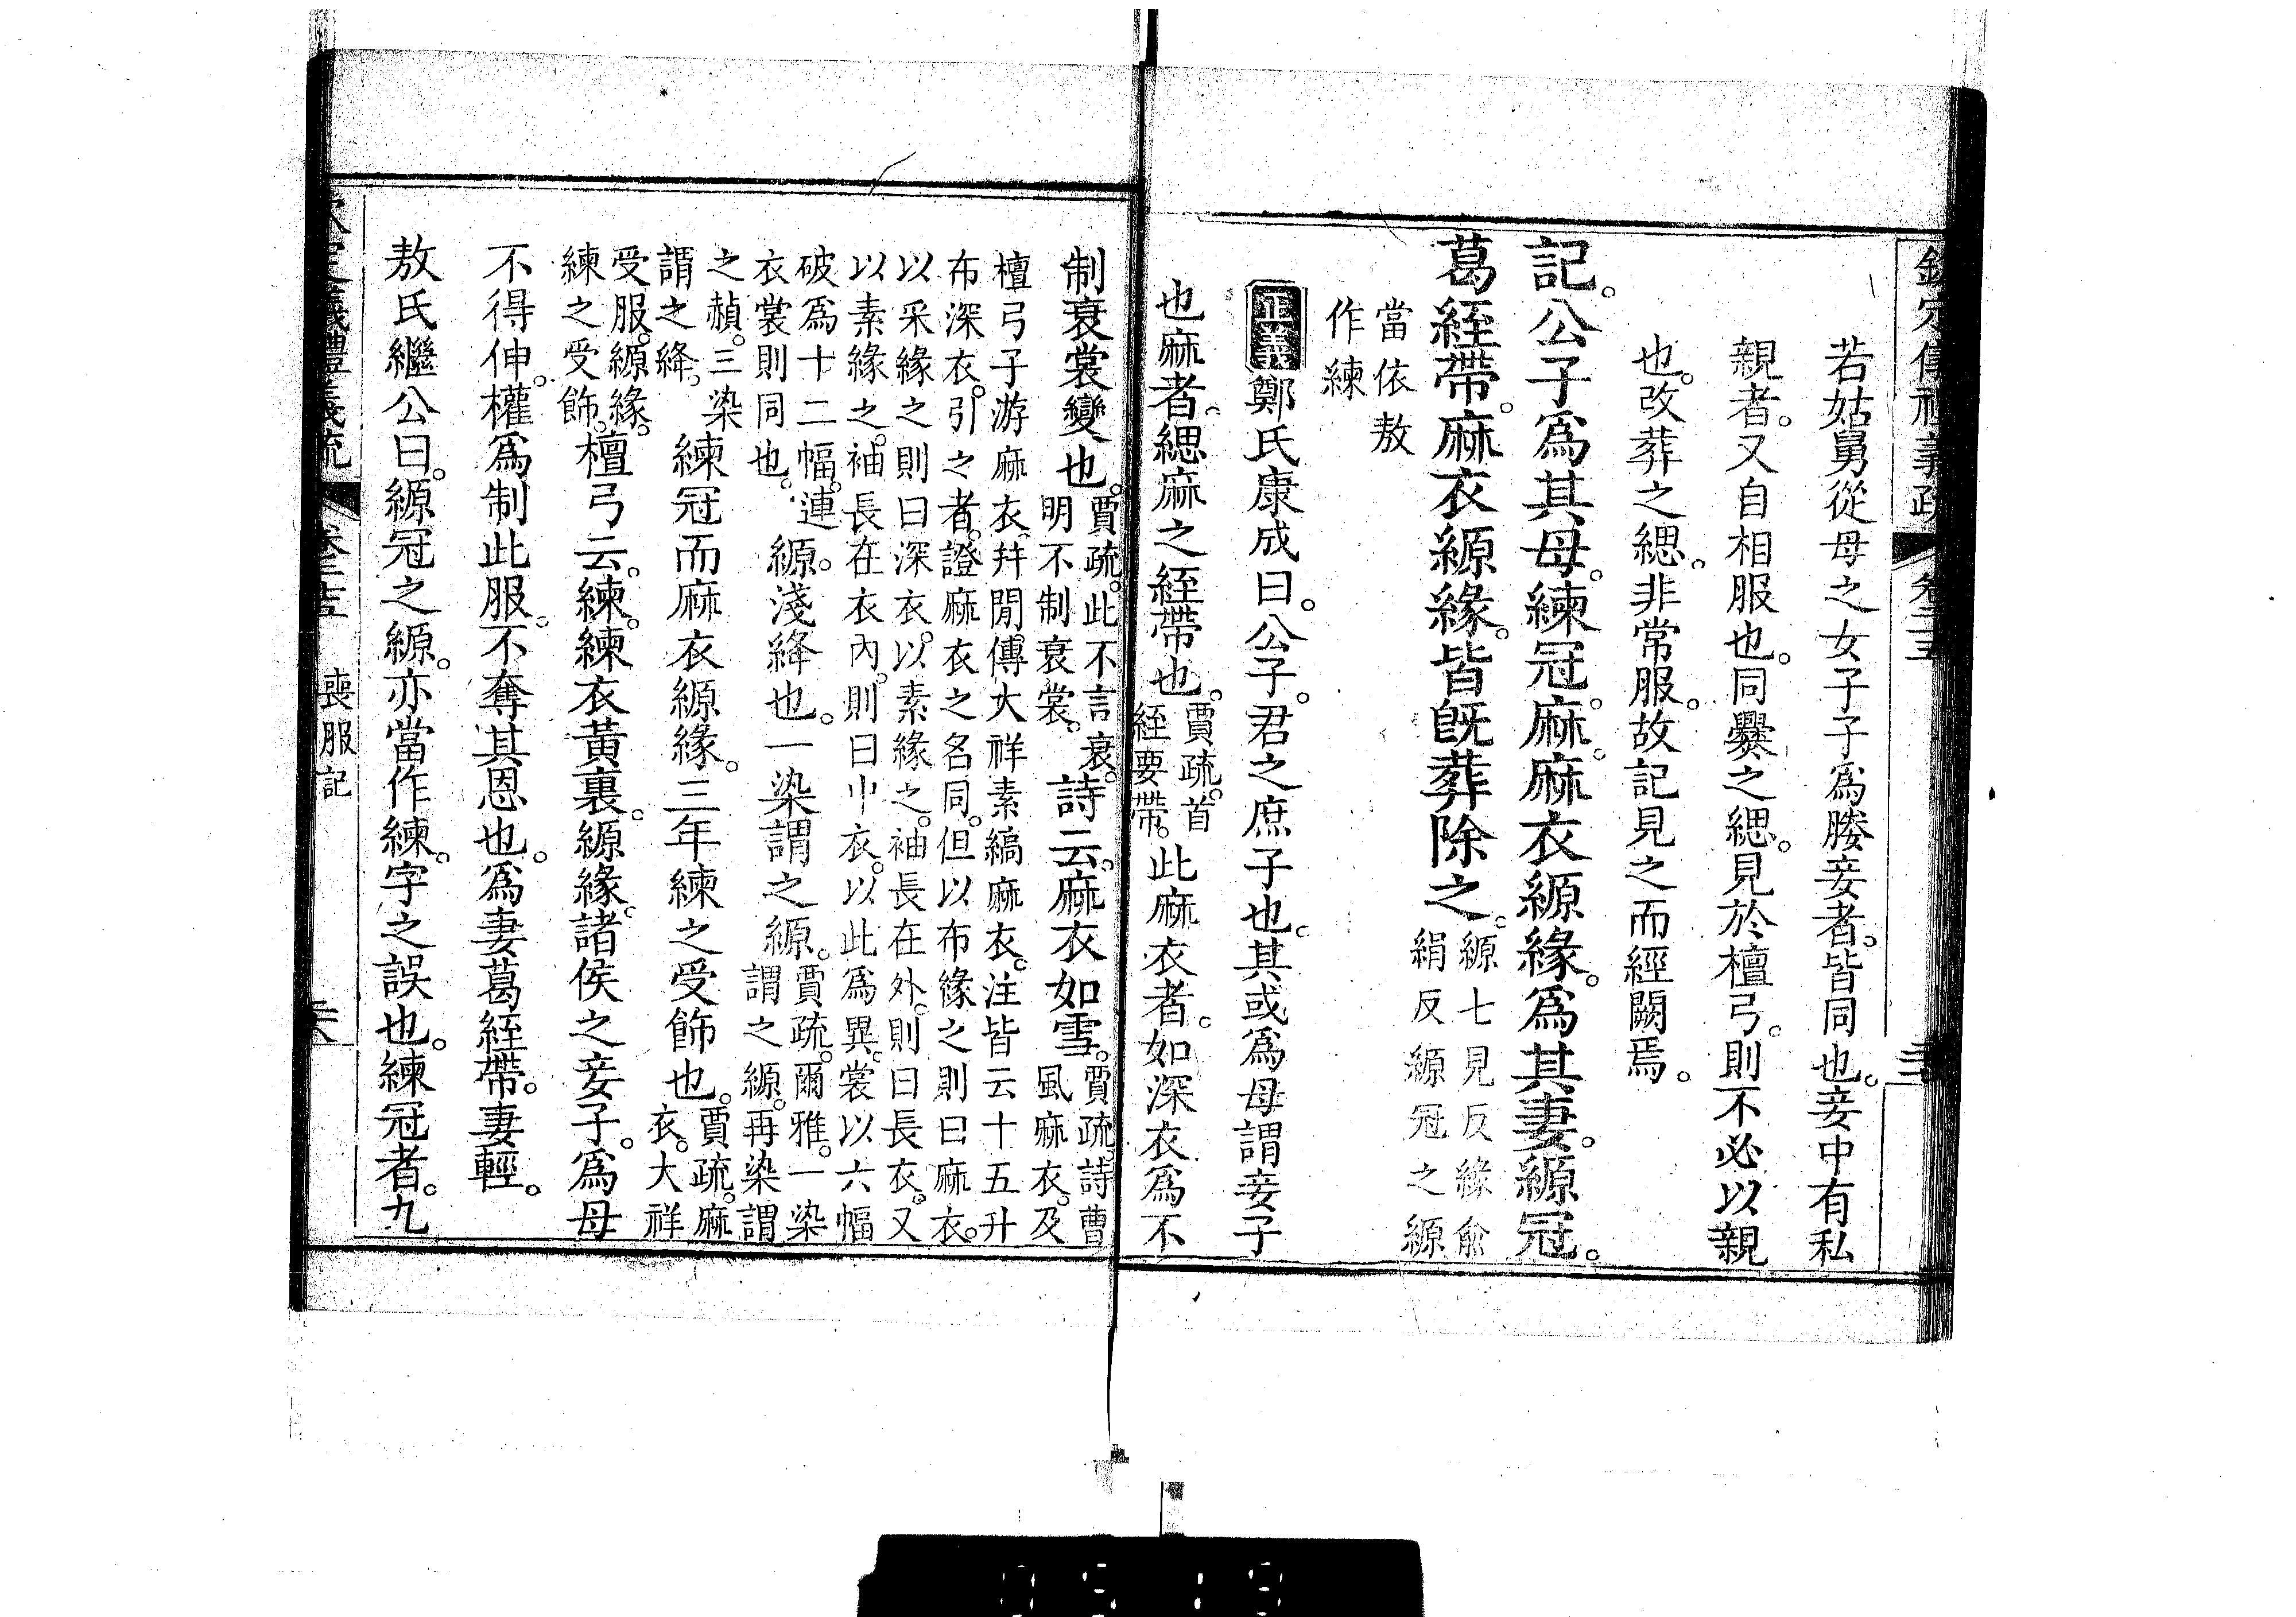 若姑舅從母之女子子爲媵妾者。皆同也。妾中有私
親者。又自相服也。同爨之緦。見於檀弓。則不必以親
也。改葬之緦。非常服。故記見之而經闕焉。
記。公子爲其母。練冠。麻。麻衣縓緣。爲其妻。縓冠。
葛絰帶。麻衣縓緣。皆旣葬除之。
縓七見反緣俞
絹反縓冠之縓
當依敖
作練
正義鄭氏康成曰。公子。君之庶子也。其或爲母謂妾子
也麻者。緦麻之絰帶也。
賈疏。首
絰要帶。
此麻衣者。如深衣爲不
制衰裳變也。
賈疏。此不言衰。
明不制衰裳。
詩云。麻衣如雪。
賈疏。詩曹
風麻衣。及
檀弓子游麻衣。幷閒傳大祥素縞麻衣。注皆云十五升
布深衣。引之者。證麻衣之名同。但以布緣之則曰麻衣。
以采緣之則曰深衣。以素緣之。袖長在外。則曰長衣。又
以素緣之。袖長在衣內。則曰中衣。以此爲異。裳以六幅
破爲十二幅。連
衣裳則同也。
縓。淺絳也。一染謂之縓。
賈疏。爾雅。一染
謂之縓。再染謂
之赬。三染
謂之絳。
練冠而麻衣縓緣。三年練之受飾也。
賈疏。麻
衣。大祥
受服。縓緣。
練之受飾。
檀弓云。練。練衣黃裏。縓緣。諸侯之妾子。爲母
不得伸。權爲制此服。不奪其恩也。爲妻葛絰帶。妻輕。
敖氏繼公曰。縓冠之縓。亦當作練。字之誤也。練冠者。九
喪服記